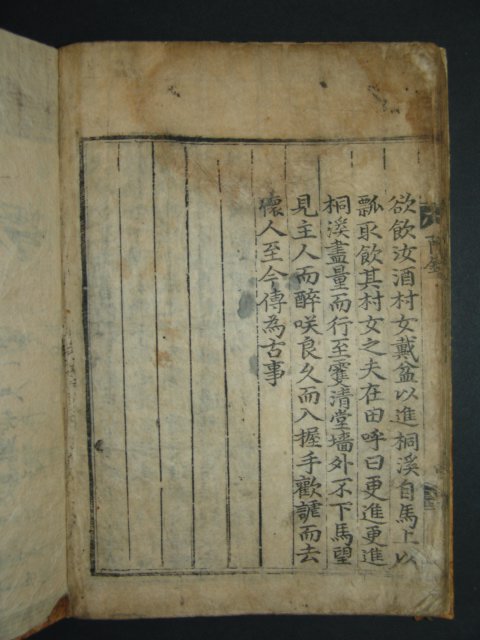 欲飮汝酒村女戴盆以進桐溪自馬上以
瓢取飮其村女之夫在田呼曰更進更進
桐溪盡量而行至霽淸堂墻外不下馬望
見主人而醉咲良久而入握手歡謔而去
懷人至今傳為古事